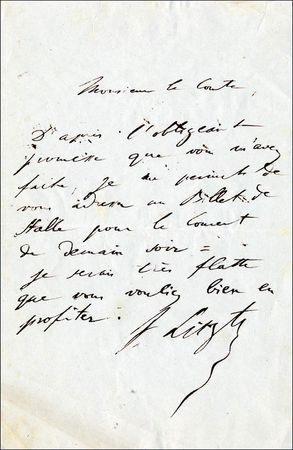 Monsieur le Comte,
D'après l'obligeante
promesse que vous m'avez
faite, je me permets de
vous adresser un Billet de
Stalle pour le Concert
de demain soir =
je serais très flatté
que vous vouliez bien en
profiter.
F Liszt